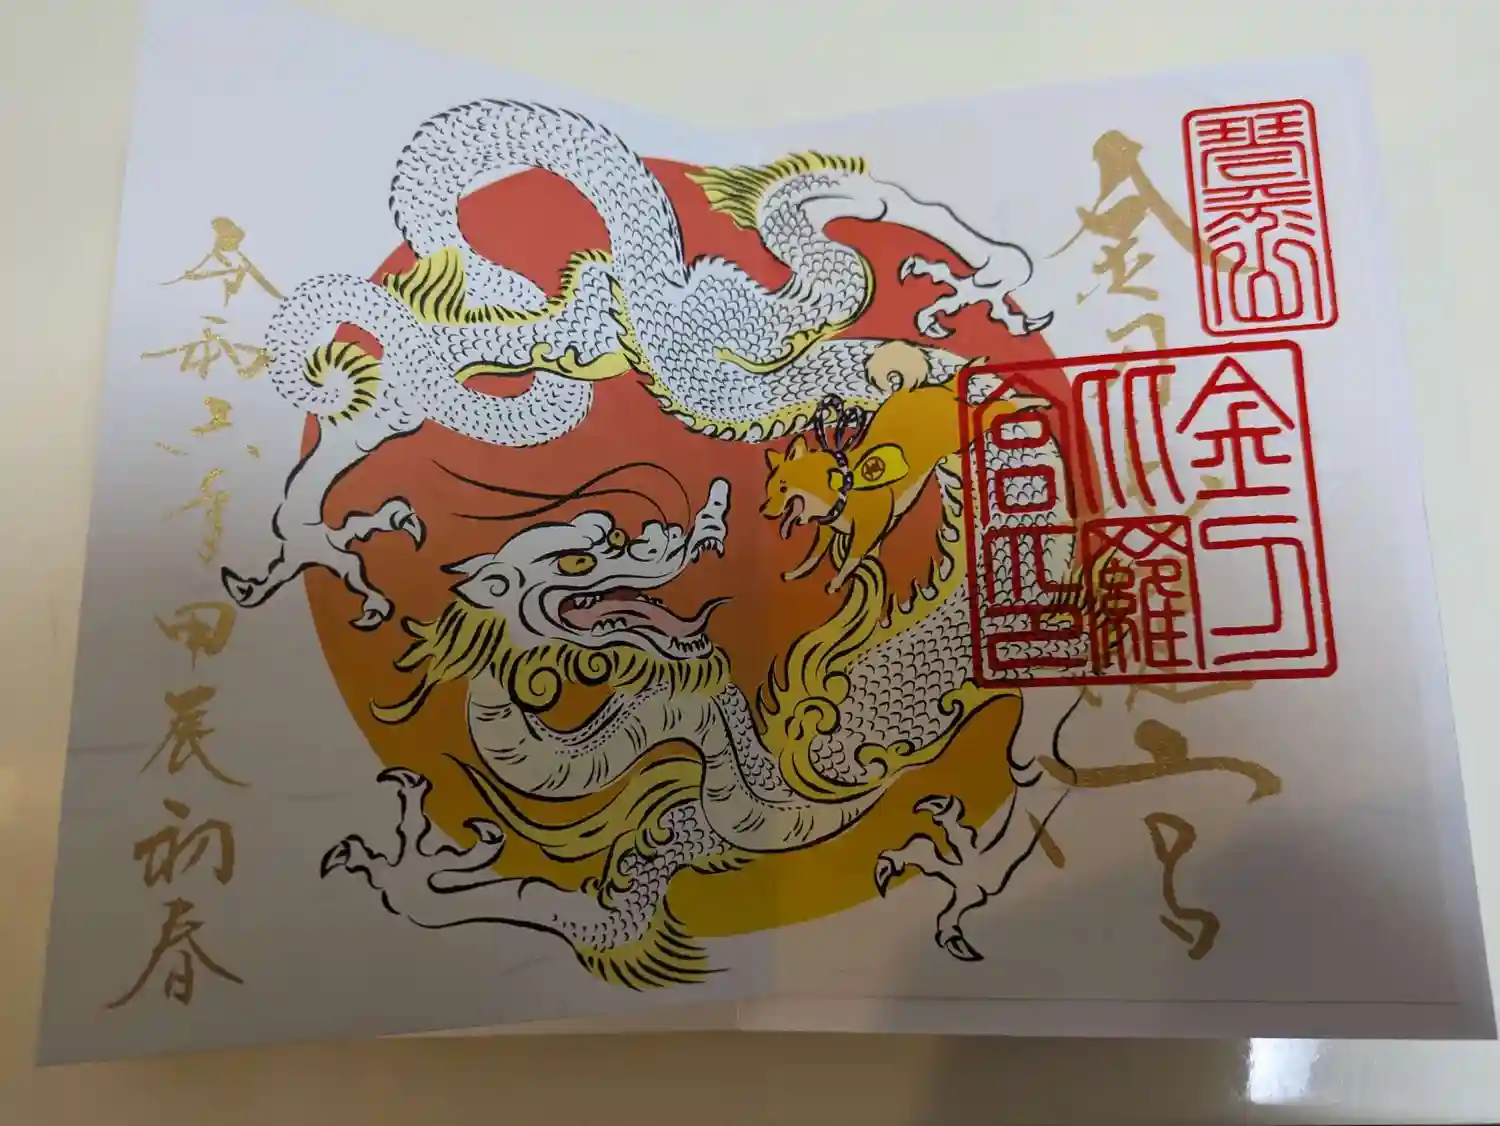 琴平山
金刀比羅宮
金刀比羅宮印
令和六年甲辰初春